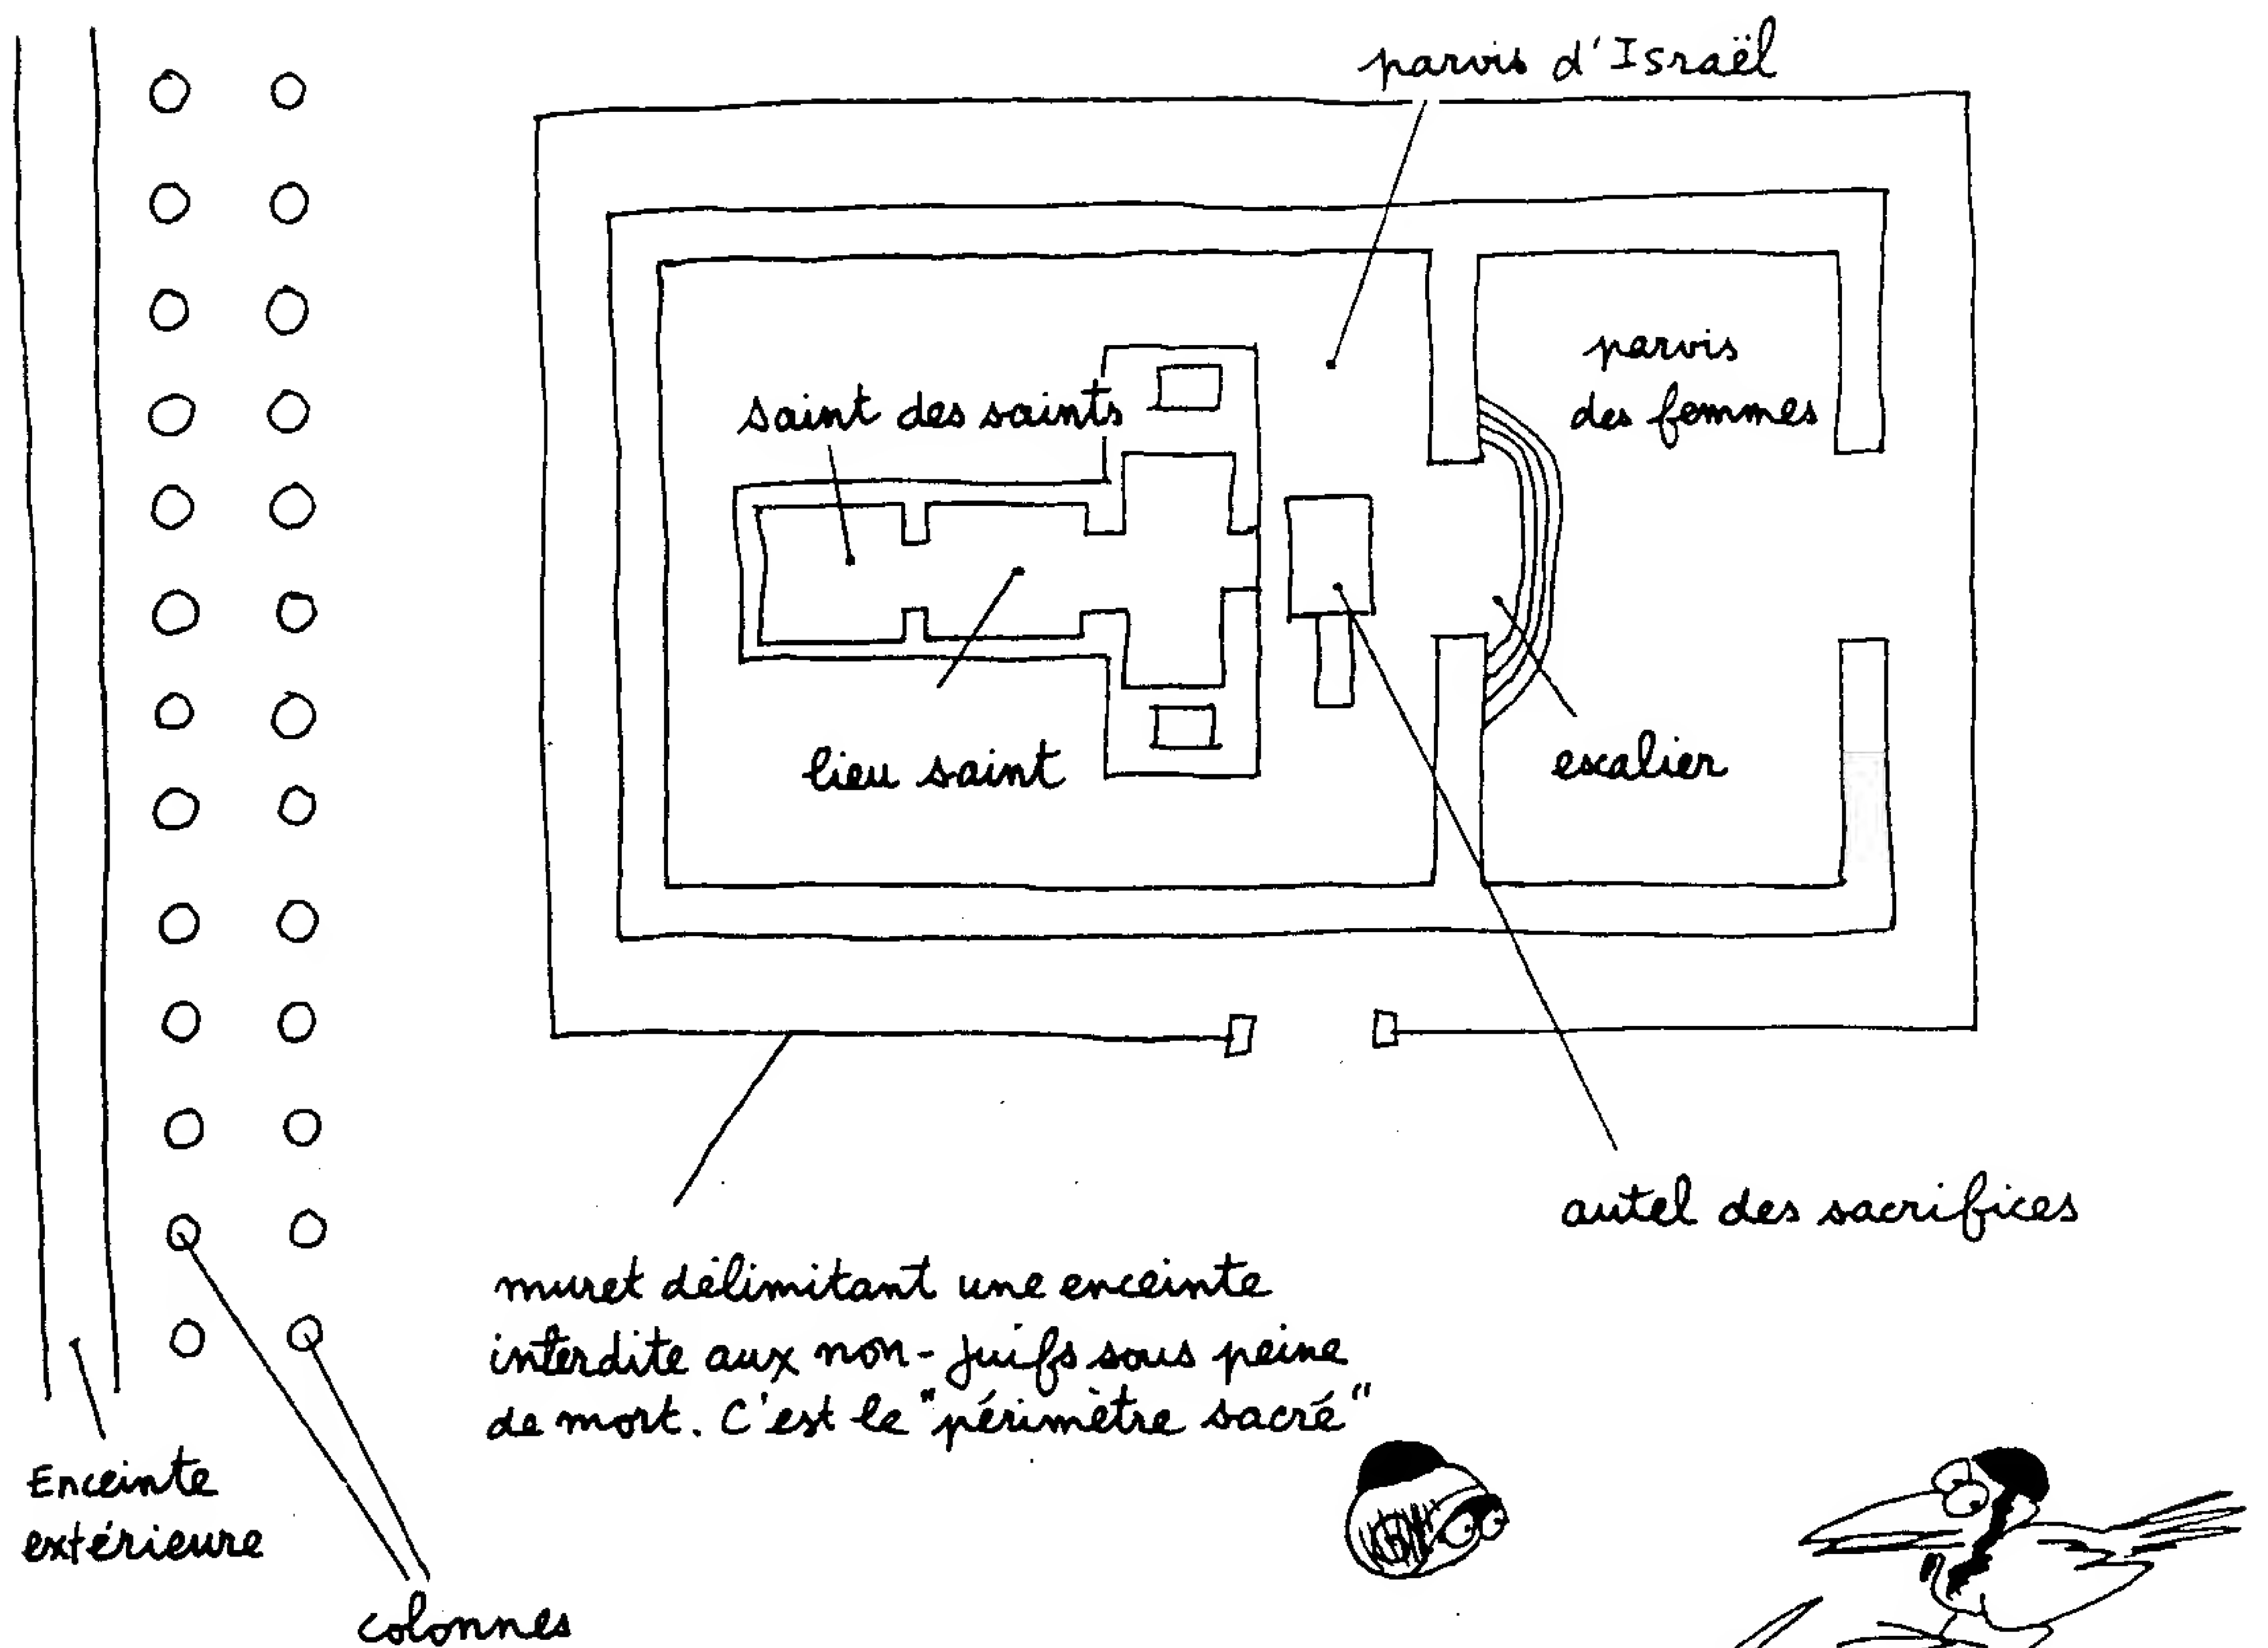 parvis d'Israël
parvis
des femmes
saint des saints
lieu saint
escalier
autel des sacrifices
muret délimitant une enceinte
interdite aux non-juifs sous peine
de mort. C'est le "périmètre sacré"
Enceinte
extérieure
colonnes